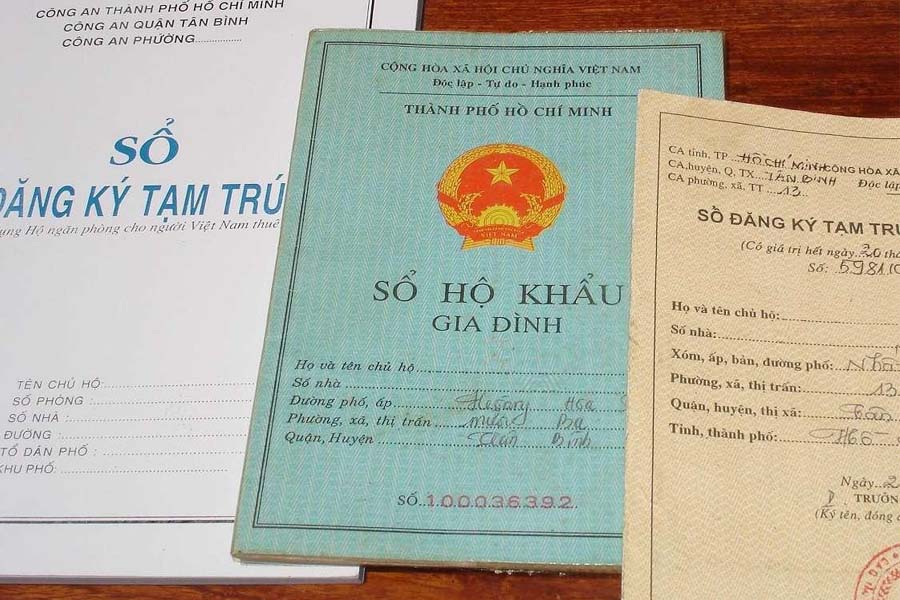 CÔNG AN THÀNH PHỐ HỒ CHÍ MINH
CÔNG AN QUẬN TÂN BÌNH
CÔNG AN PHƯỜNG
SỔ
ĐĂNG KÝ TẠM TRÚ
Hộ ngăn phòng cho người Việt Nam thuê
TÊN CHỦ HỘ:
SỐ PHÒNG :
SỐ NHÀ :
ĐƯỜNG :
TỔ DÂN PHỐ :
KHU PHỐ:
CỘNG HÒA XÃ HỘI CHỦ NGHĨA VIỆT NAM
Độc lập - Tự do - Hạnh phúc
THÀNH PHỐ HỒ CHÍ MINH
VIỆT NAM
SỔ HỘ KHẨU
GIA ĐÌNH
Họ và tên chủ hộ
Số nhà
Đường phố, ấp
Phường, xã, thị trấn mười Ba
Quận, Huyện Tân Bình
SỐ 100036392
CA tỉnh, TP HỒ CHÍ MINH CỘNG HÒA XÃ
CA,huyện, Q, TX TÂN BÌNH Độc lập
CA phường, xã, TT 13
SỔ ĐĂNG KÝ TẠM TRÚ
(Có giá trị hết ngày 30
Số: 5981
Họ và tên chủ hộ:
Số nhà:
Xóm, ấp, bản, đường phố:
Phường, xã, thị trấn: 13
Quận, huyện, thị xã: Tân
Tỉnh, thành phố:
Ngày 2
TRƯỞN
(Ký tên, đóng